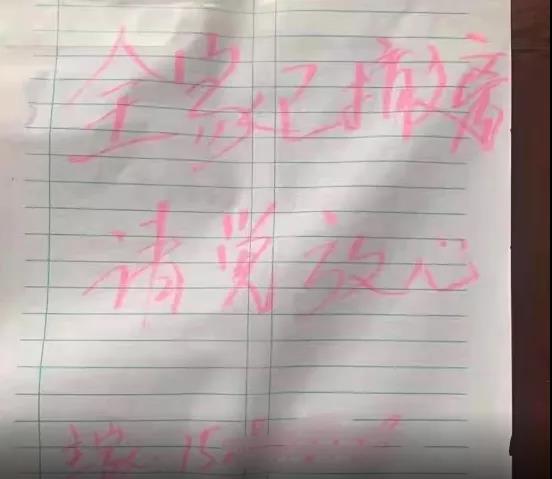 全家已撤离
请党放心
主家：15